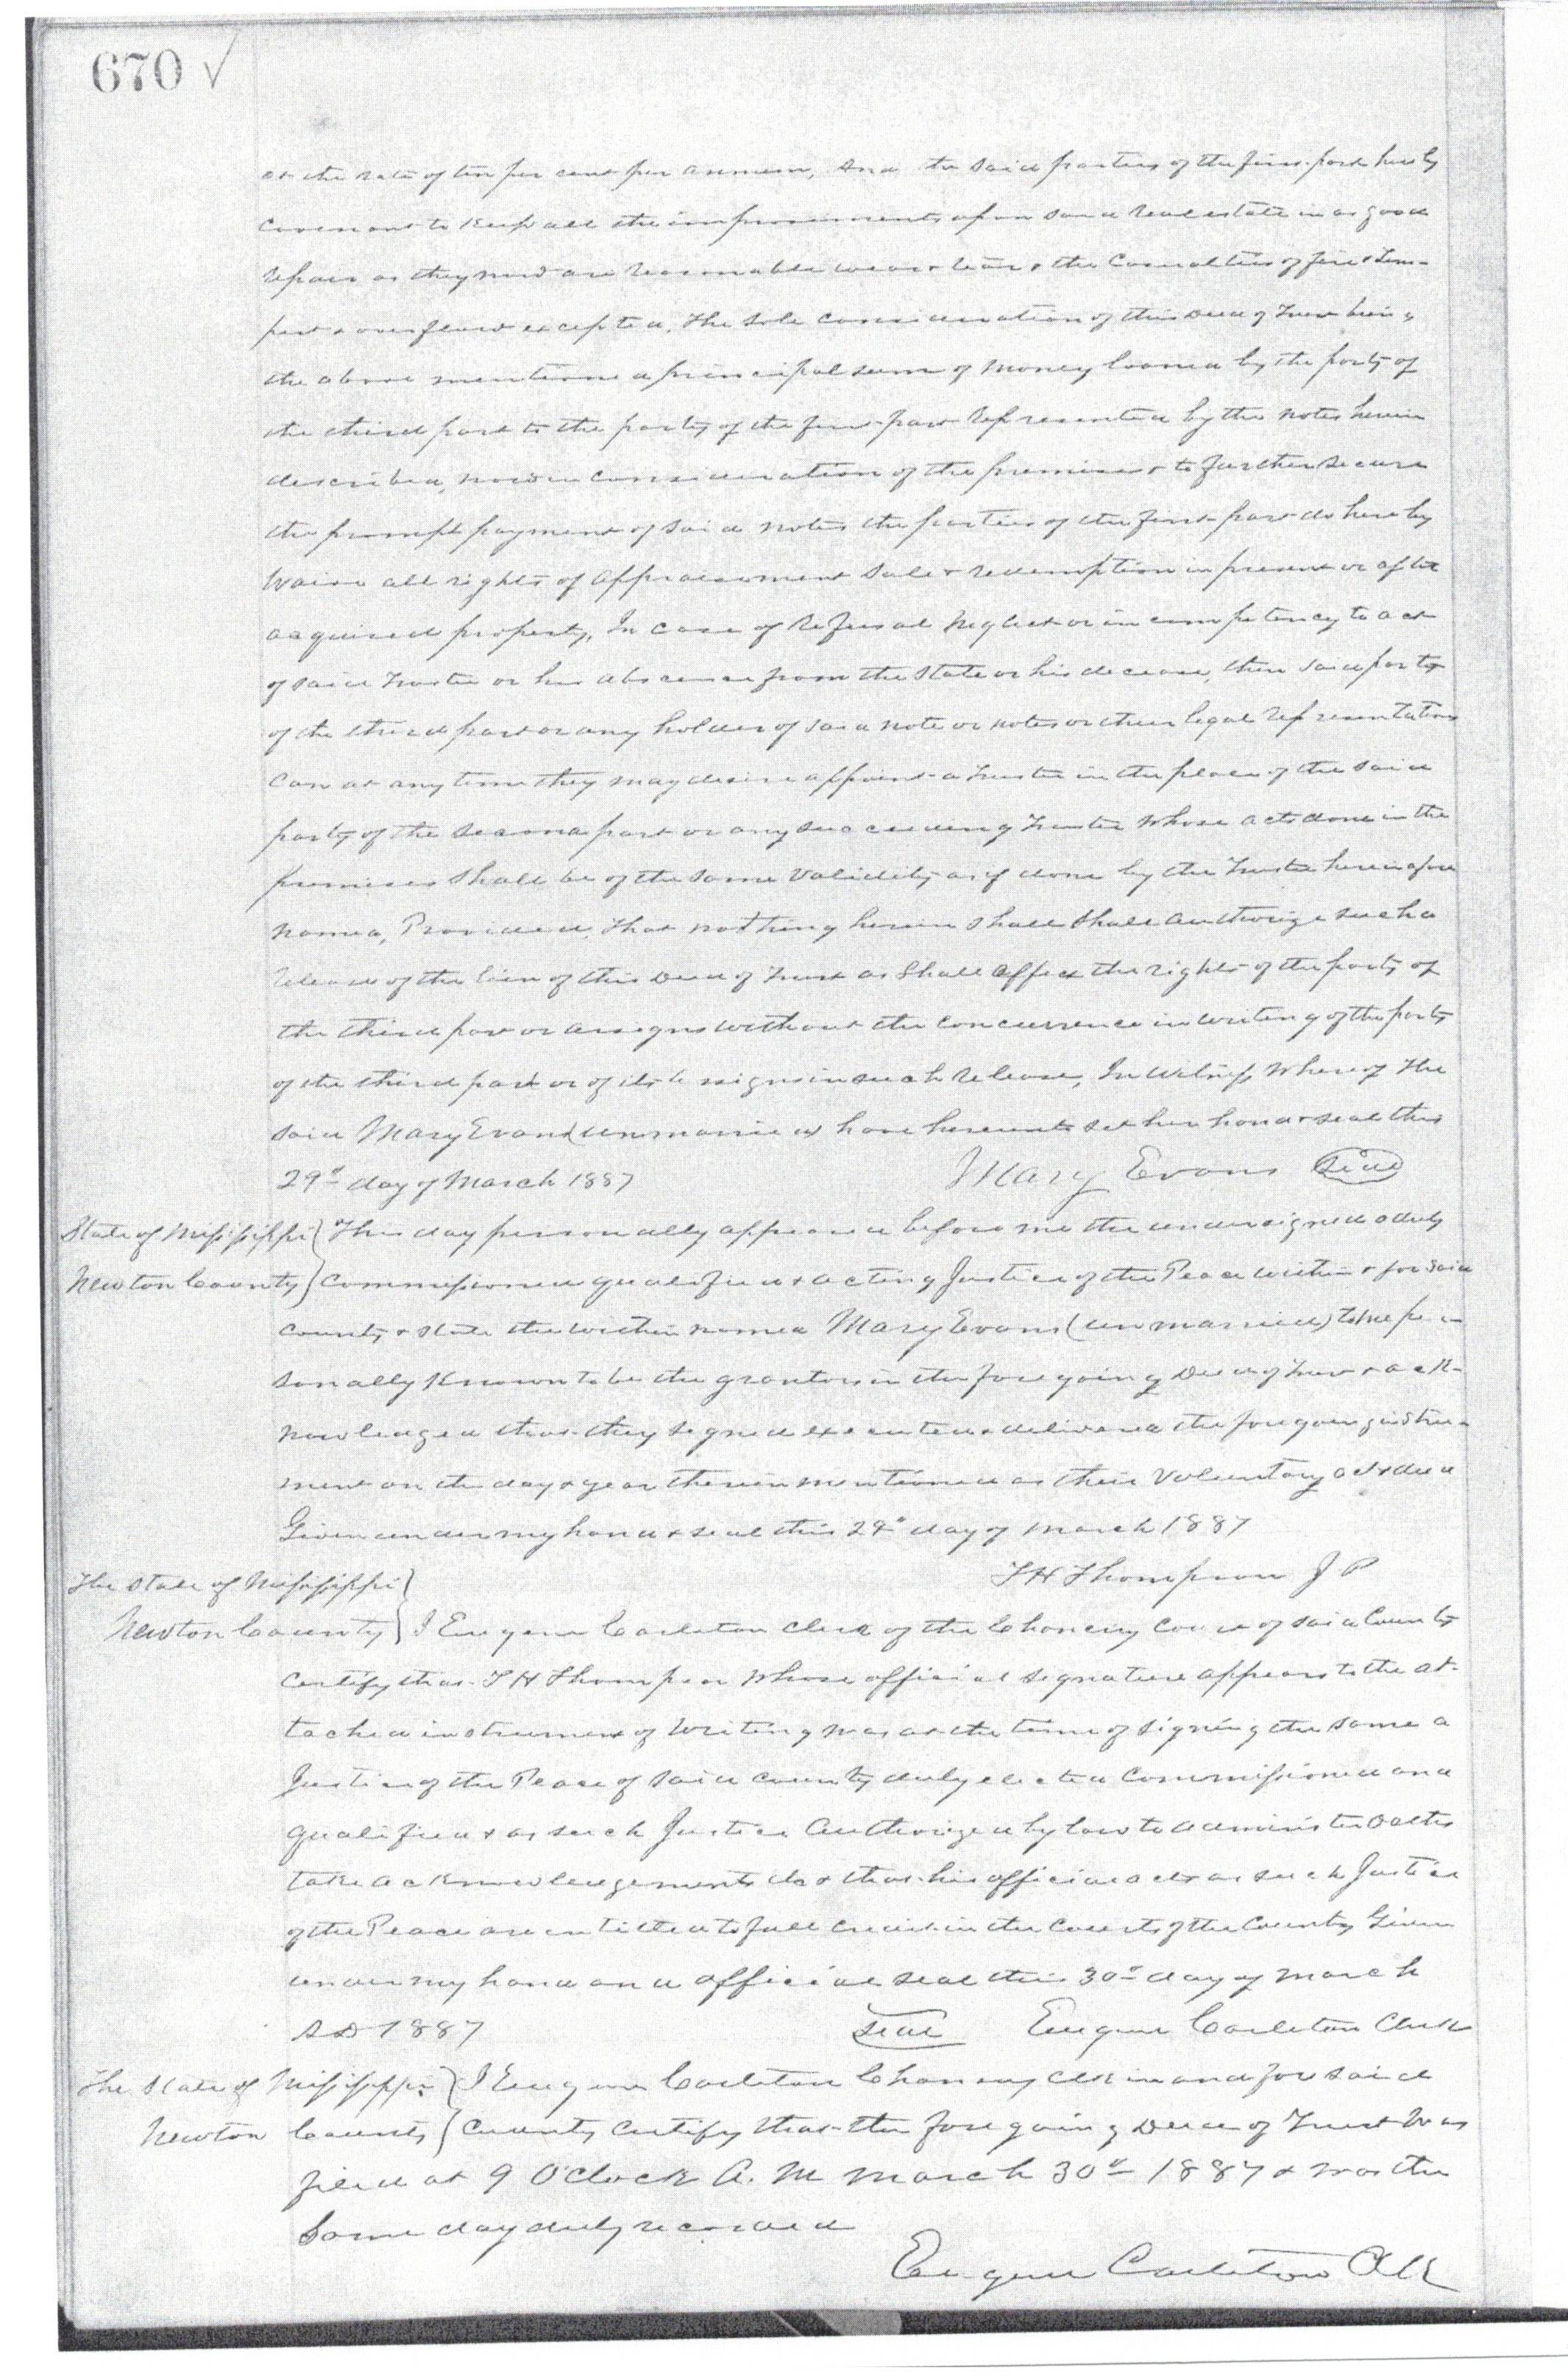 670 ✓
at the rate of ten per cent per annum, And the said parties of the first part hereby
covenant to keep all the improvements upon said real estate in as good
repair as they now are reasonable wear & tear & the Casualties of fire & Tem-
pest & overflow excepted, The sole consideration of this Deed of Trust being
the above mentioned principal sum of money loaned by the party of
the third part to the party of the first part represented by the notes herein
described, now in consideration of the premises & to further secure
the prompt payment of said notes the parties of the first part do hereby
waive all rights of appraisement sale & redemption in present or after
acquired property, In case of refusal neglect or incompetency to act
of said Trustee or his absence from the State or his decease, then said party
of the third part or any holder of said note or notes or their legal representatives
can at any time they may desire appoint a Trustee in the place of the said
party of the second part or any succeeding Trustee whose acts done in the
premises shall be of the same validity as if done by the Trustee hereinafore
named, Provided, that nothing herein shall shall authorize such a
release of the lien of this Deed of Trust as shall affect the rights of the party of
the third part or assigns without the concurrence in writing of the party
of the third part or of its assigns in such release, In Witness Whereof the
said Mary Evans (unmarried) have hereunto set her hand & seal this
29th day of March 1887 Mary Evans Seal
State of Mississippi } This day personally appeared before me the undersigned a duly
Newton County } commissioned qualified & acting Justice of the Peace within & for said
county & state the within named Mary Evans (unmarried) to me per-
sonally known to be the grantors in the foregoing Deed of Trust & ack-
nowledged that they signed executed & delivered the foregoing instru-
ment on the day & year therein mentioned as their voluntary act & deed
Given under my hand & seal this 29th day of March 1887
T H Thompson J P
The State of Mississippi }
Newton County } I Eugene Carleton clerk of the Chancery Court of said County
certify that T H Thompson whose official signature appears to the at-
tached instrument of writing was at the time of signing the same a
Justice of the Peace of said county duly elected commissioned and
qualified & as such Justice authorized by law to administer oaths
take acknowledgements &c & that his official acts as such Justice
of the Peace are entitled to full credit in the courts of the County Given
under my hand and official seal this 30th day of March
AD 1887 Seal Eugene Carleton Clerk
The State of Mississippi } I Eugene Carleton Chancery Clk in and for said
Newton County } County certify that the foregoing Deed of Trust was
filed at 9 O'Clock A. M March 30th 1887 & was the
Same day duly recorded
Eugene Carleton Clk